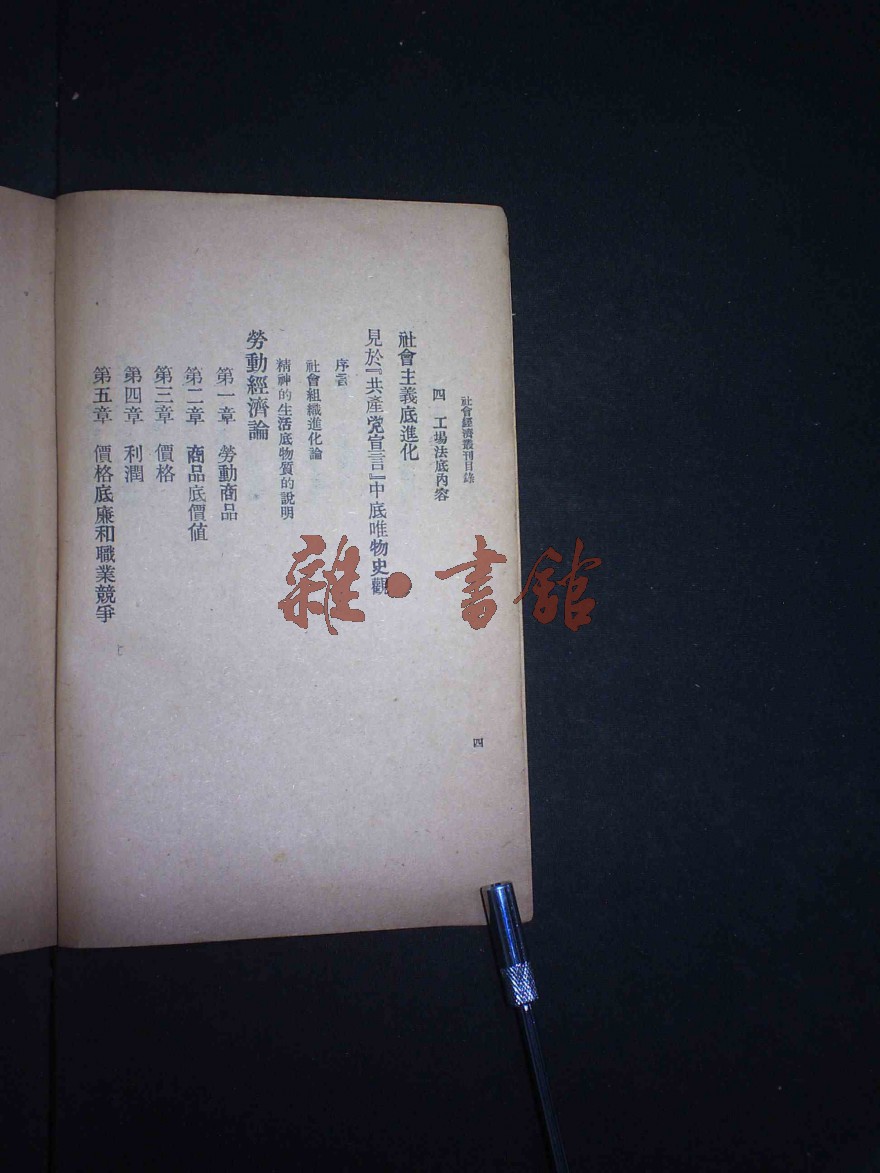 社會經濟叢刊目錄
四　工場法底內容
社會主義底進化
見於『共產党宣言』中底唯物史觀
序言
社會組織進化論
精神的生活底物質的說明
勞動經濟論
第一章　勞動商品
第二章　商品底價値
第三章　價格
第四章　利潤
第五章　價格底廉和職業競爭
四
雜·書館